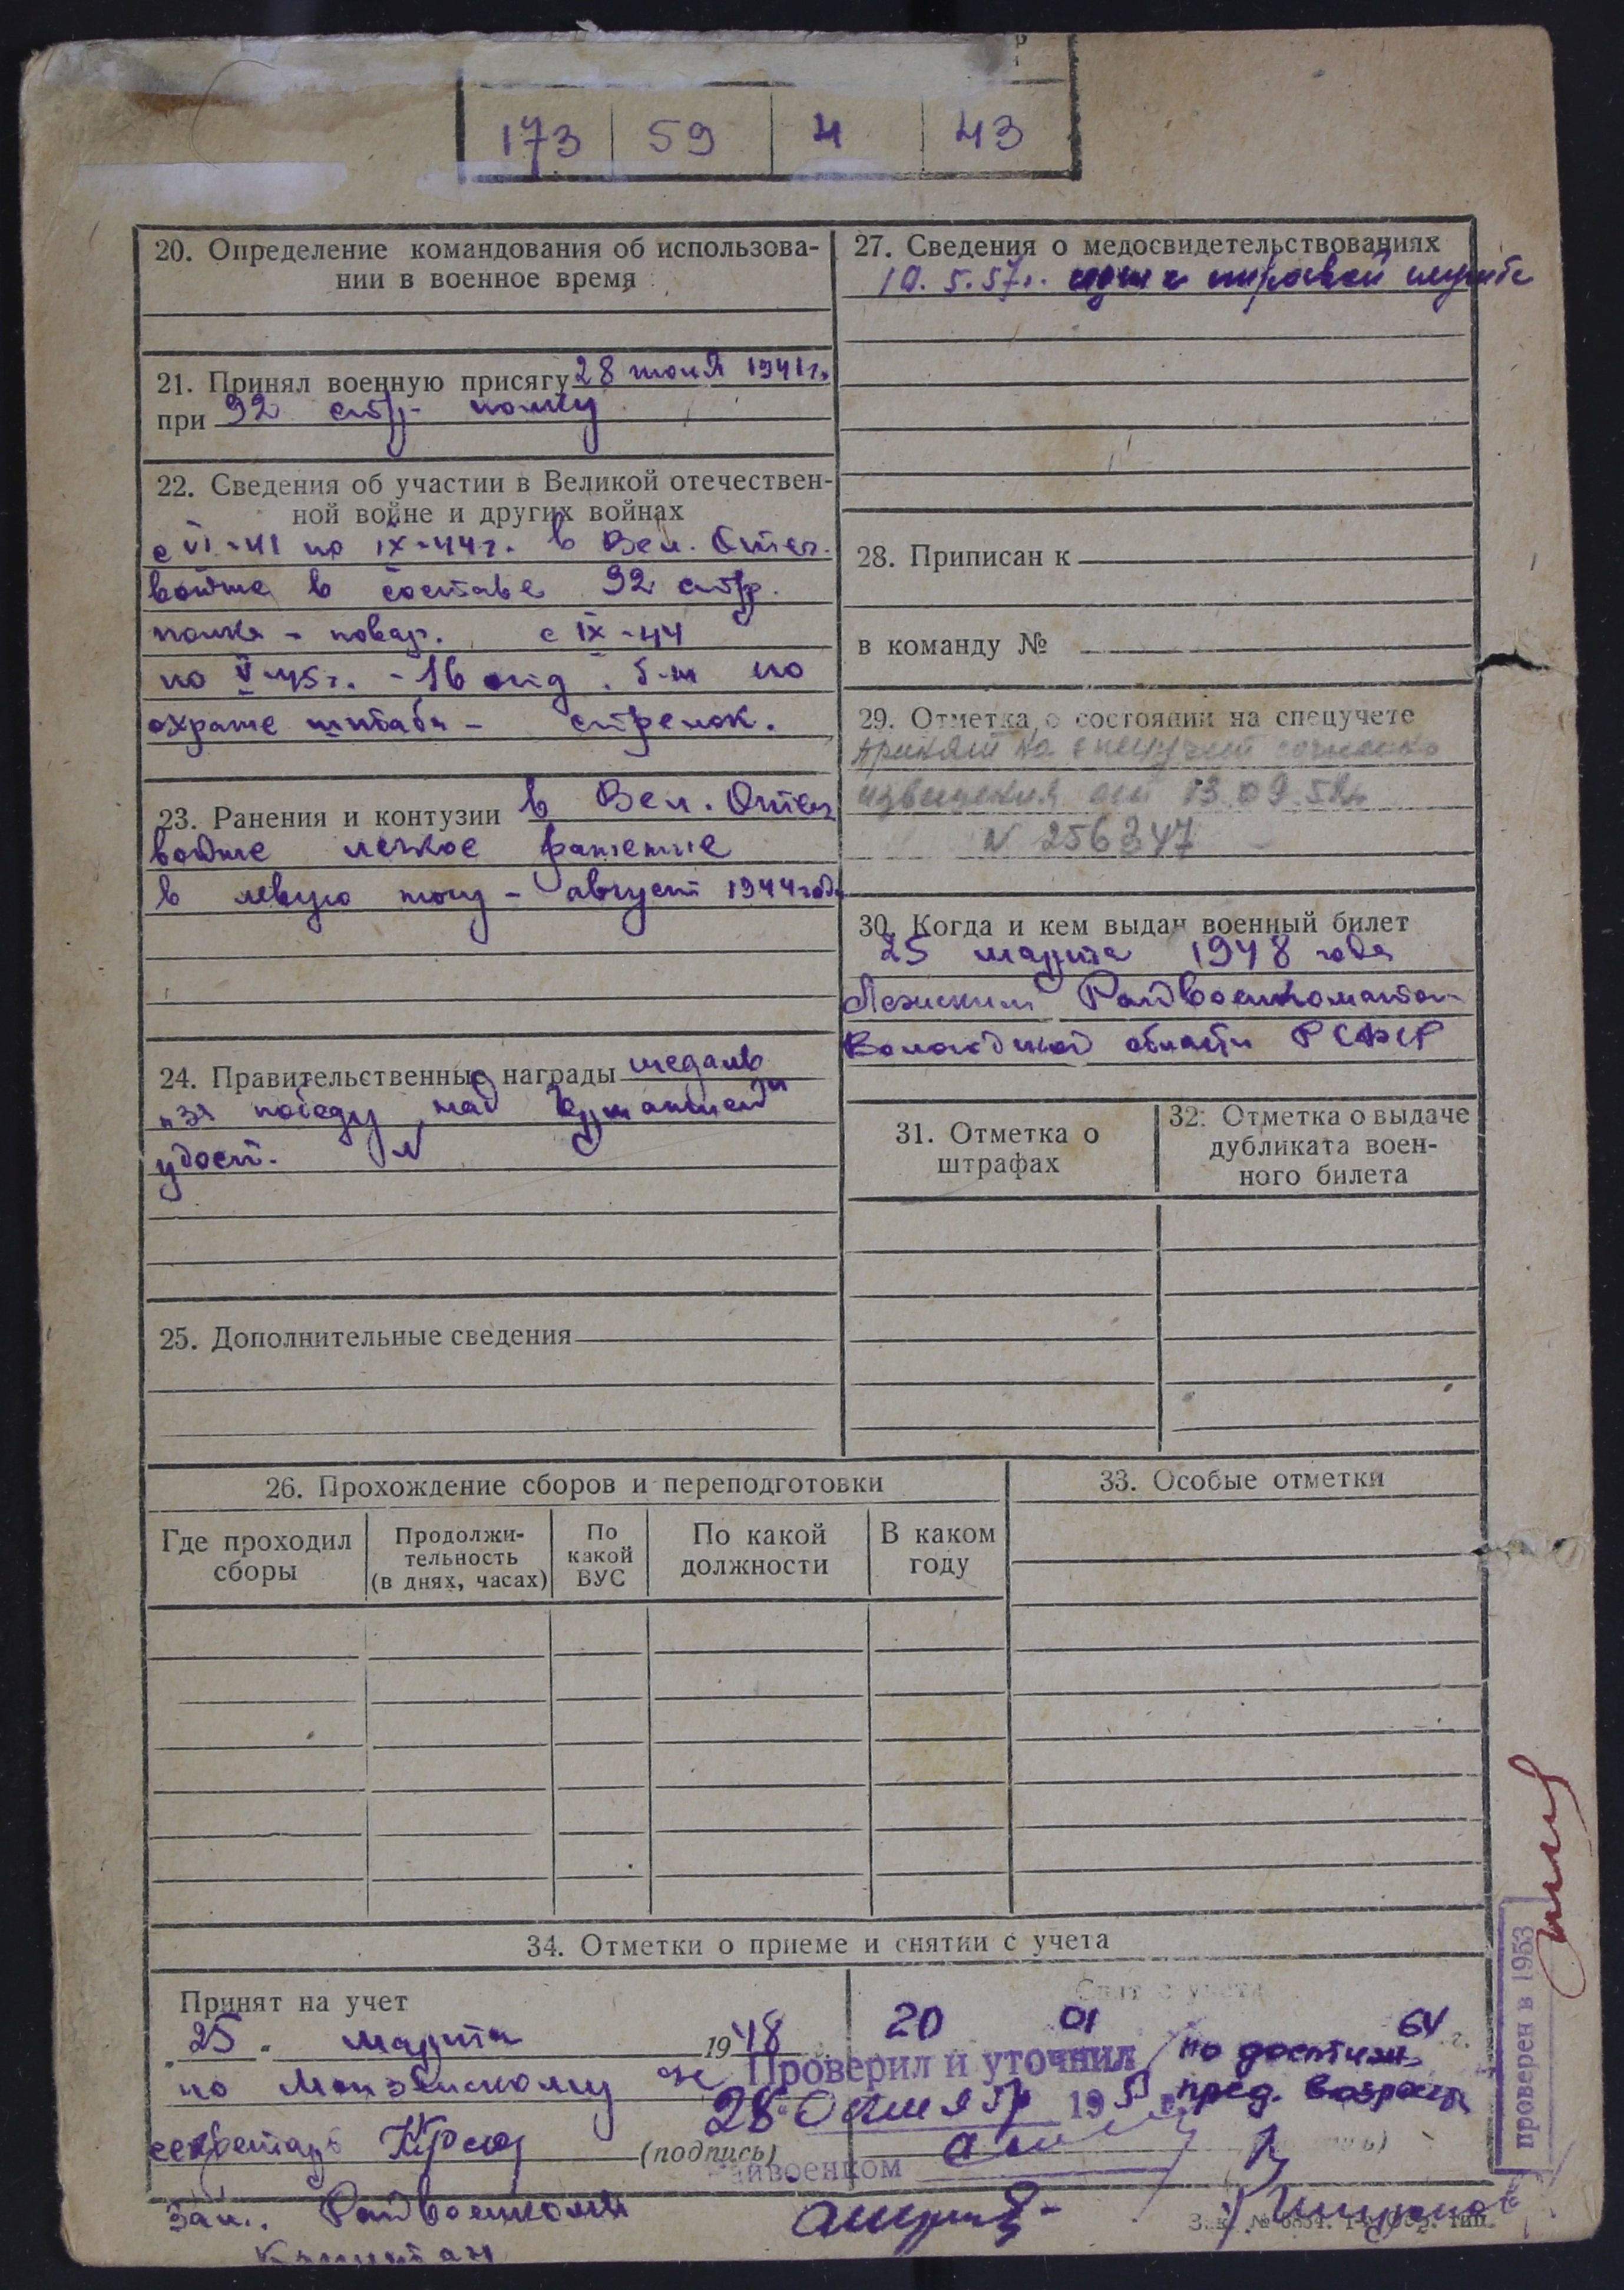 173 59 4 43
20. Определение командования об использова-
нии в военное время
21. Принял военную присягу 28 июня 1941г.
при 92 стр. полку
22. Сведения об участии в Великой отечествен-
ной войне и других войнах
с VI-41 по IX-44г. в Вел. Отеч.
войне в составе 92 стр.
полка - повар. с IX-44
по V-45г. - 16 отд. б-н по
охране штаба - стрелок.
23. Ранения и контузии в Вел. Отеч
войне легкое ранение
в левую ногу - август 1944 года
24. Правительственные награды медаль
"За победу над Германией"
удост. N
25. Дополнительные сведения
26. Прохождение сборов и переподготовки
Где проходил
сборы
Продолжи-
тельность
(в днях, часах)
По
какой
ВУС
По какой
должности
В каком
году
27. Сведения о медосвидетельствованиях
10.5.57г. годен к строевой службе
28. Приписан к
в команду №
29. Отметка о состоянии на спецучете
принят на спецучет согласно
извещения от 13.09.52г
N 256347
30. Когда и кем выдан военный билет
25 марта 1948 года
Лежским Райвоенкоматом
Вологодской области РСФСР
31. Отметка о
штрафах
32. Отметка о выдаче
дубликата воен-
ного билета
33. Особые отметки
34. Отметки о приеме и снятии с учета
Принят на учет
"25" марта 1948
по Монзенскому
секретарь
(подпись)
Зам. Райвоенкома
Капитан
Снят с учета
20 01 64 г.
по достиж.
пред. возраста
Проверил и уточнил
28 октября 195
Райвоенком
проверен в 1953